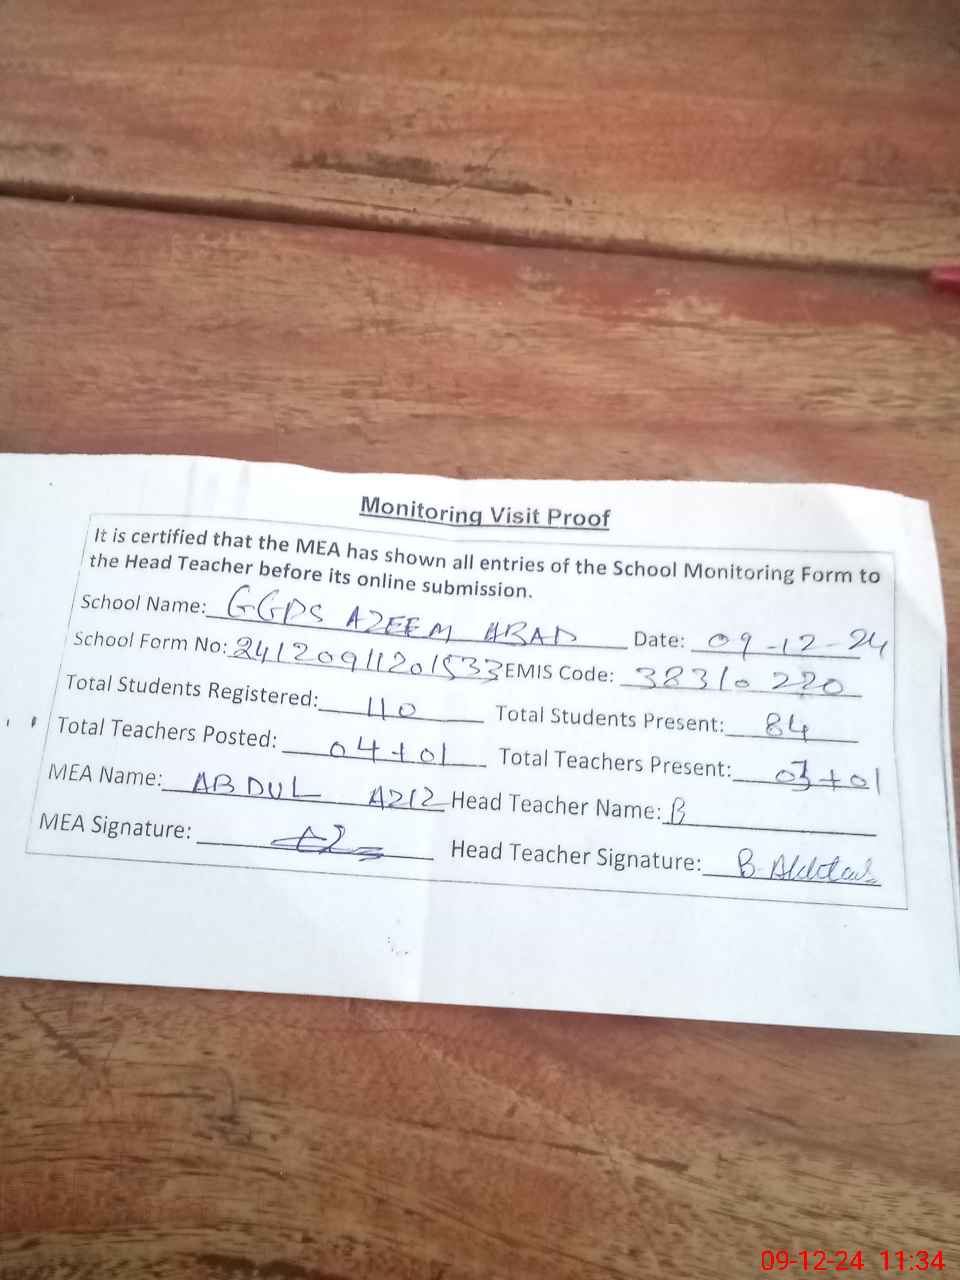 Monitoring Visit Proof
It is certified that the MEA has shown all entries of the School Monitoring Form to
the Head Teacher before its online submission.
School Name: GGPS AZEEM ABAD Date: 09-12-24
School Form No: 24120911201533 EMIS Code: 38310220
Total Students Registered: 110 Total Students Present: 84
Total Teachers Posted: 04+01 Total Teachers Present: 03+01
MEA Name: ABDUL AZIZ Head Teacher Name: B
MEA Signature: Head Teacher Signature: B. Akhtar
09-12-24 11:34